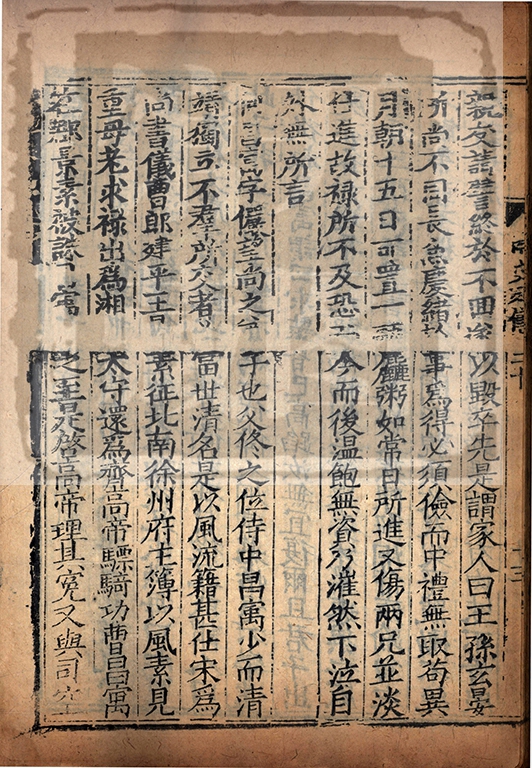 親友請譬終於不回遂以毀卒先是謂家人曰王孫玄晏
所尚不同長魚慶緒於事爲得必須儉而中禮無取苟異
月朝十五日可置一甌麤粥如常日所進又傷兩兄並淡
仕進故祿所不及恐今而後溫飽無資乃潅然下泣自
外無所言
字儼望尚之子也父佟之位侍中昌寓少而清
靖獨立不羣所交者當世清名是以風流籍甚仕宋爲
尚書儀曹郎建平王素征北南徐州府主簿以風素見
重母老求祿出爲湘太守還爲齊高帝驃騎功曹昌寓
在郡景素被誅昌之至是啓高帝理其寃又與司空